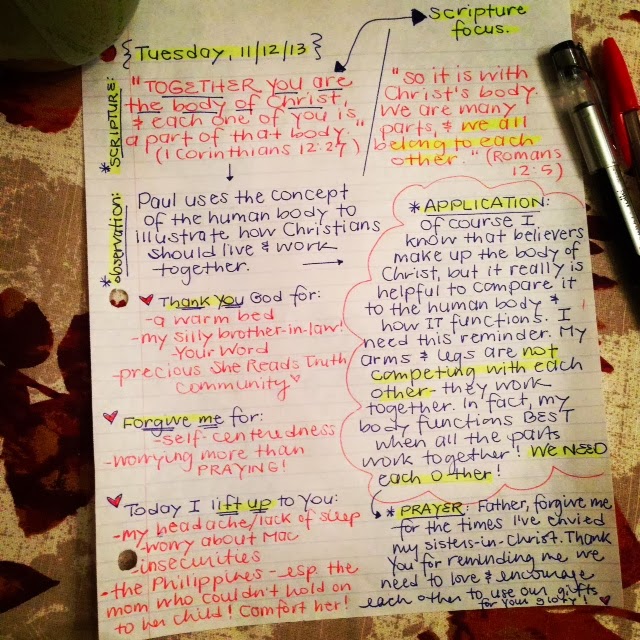 scripture
focus.
{Tuesday, 11/12/13}
* SCRIPTURE:
"TOGETHER you are
the body of Christ,
& each one of you is
a part of that body."
(1 Corinthians 12:27)
"so it is with
Christ's body.
We are many
parts, & we all
belong to each
other." (Romans
12:5)
* observation:
Paul uses the concept
of the human body to
illustrate how Christians
should live & work
together.
* APPLICATION:
Of course I
know that believers
make up the body of
Christ, but it really is
helpful to compare it
to the human body &
how IT functions. I
need this reminder. My
arms & legs are not
competing with each
other - they work
together. In fact, my
body functions BEST
when all the parts
work together! We NEED
each other!
Thank You God for:
-a warm bed
-my silly brother-in-law!
-Your Word
-precious She Reads Truth
community
Forgive me for:
-self-centeredness
-worrying more than
PRAYING!
Today I lift up to you:
-my headache/lack of sleep
-worry about Mac
-insecurities
-the Philippines - esp. the
mom who couldn't hold on
to her child! Comfort her!
* PRAYER: Father, forgive me
for the times I've envied
my sisters-in-Christ. Thank
you for reminding me we
need to love & encourage
each other to use our gifts
for your glory!